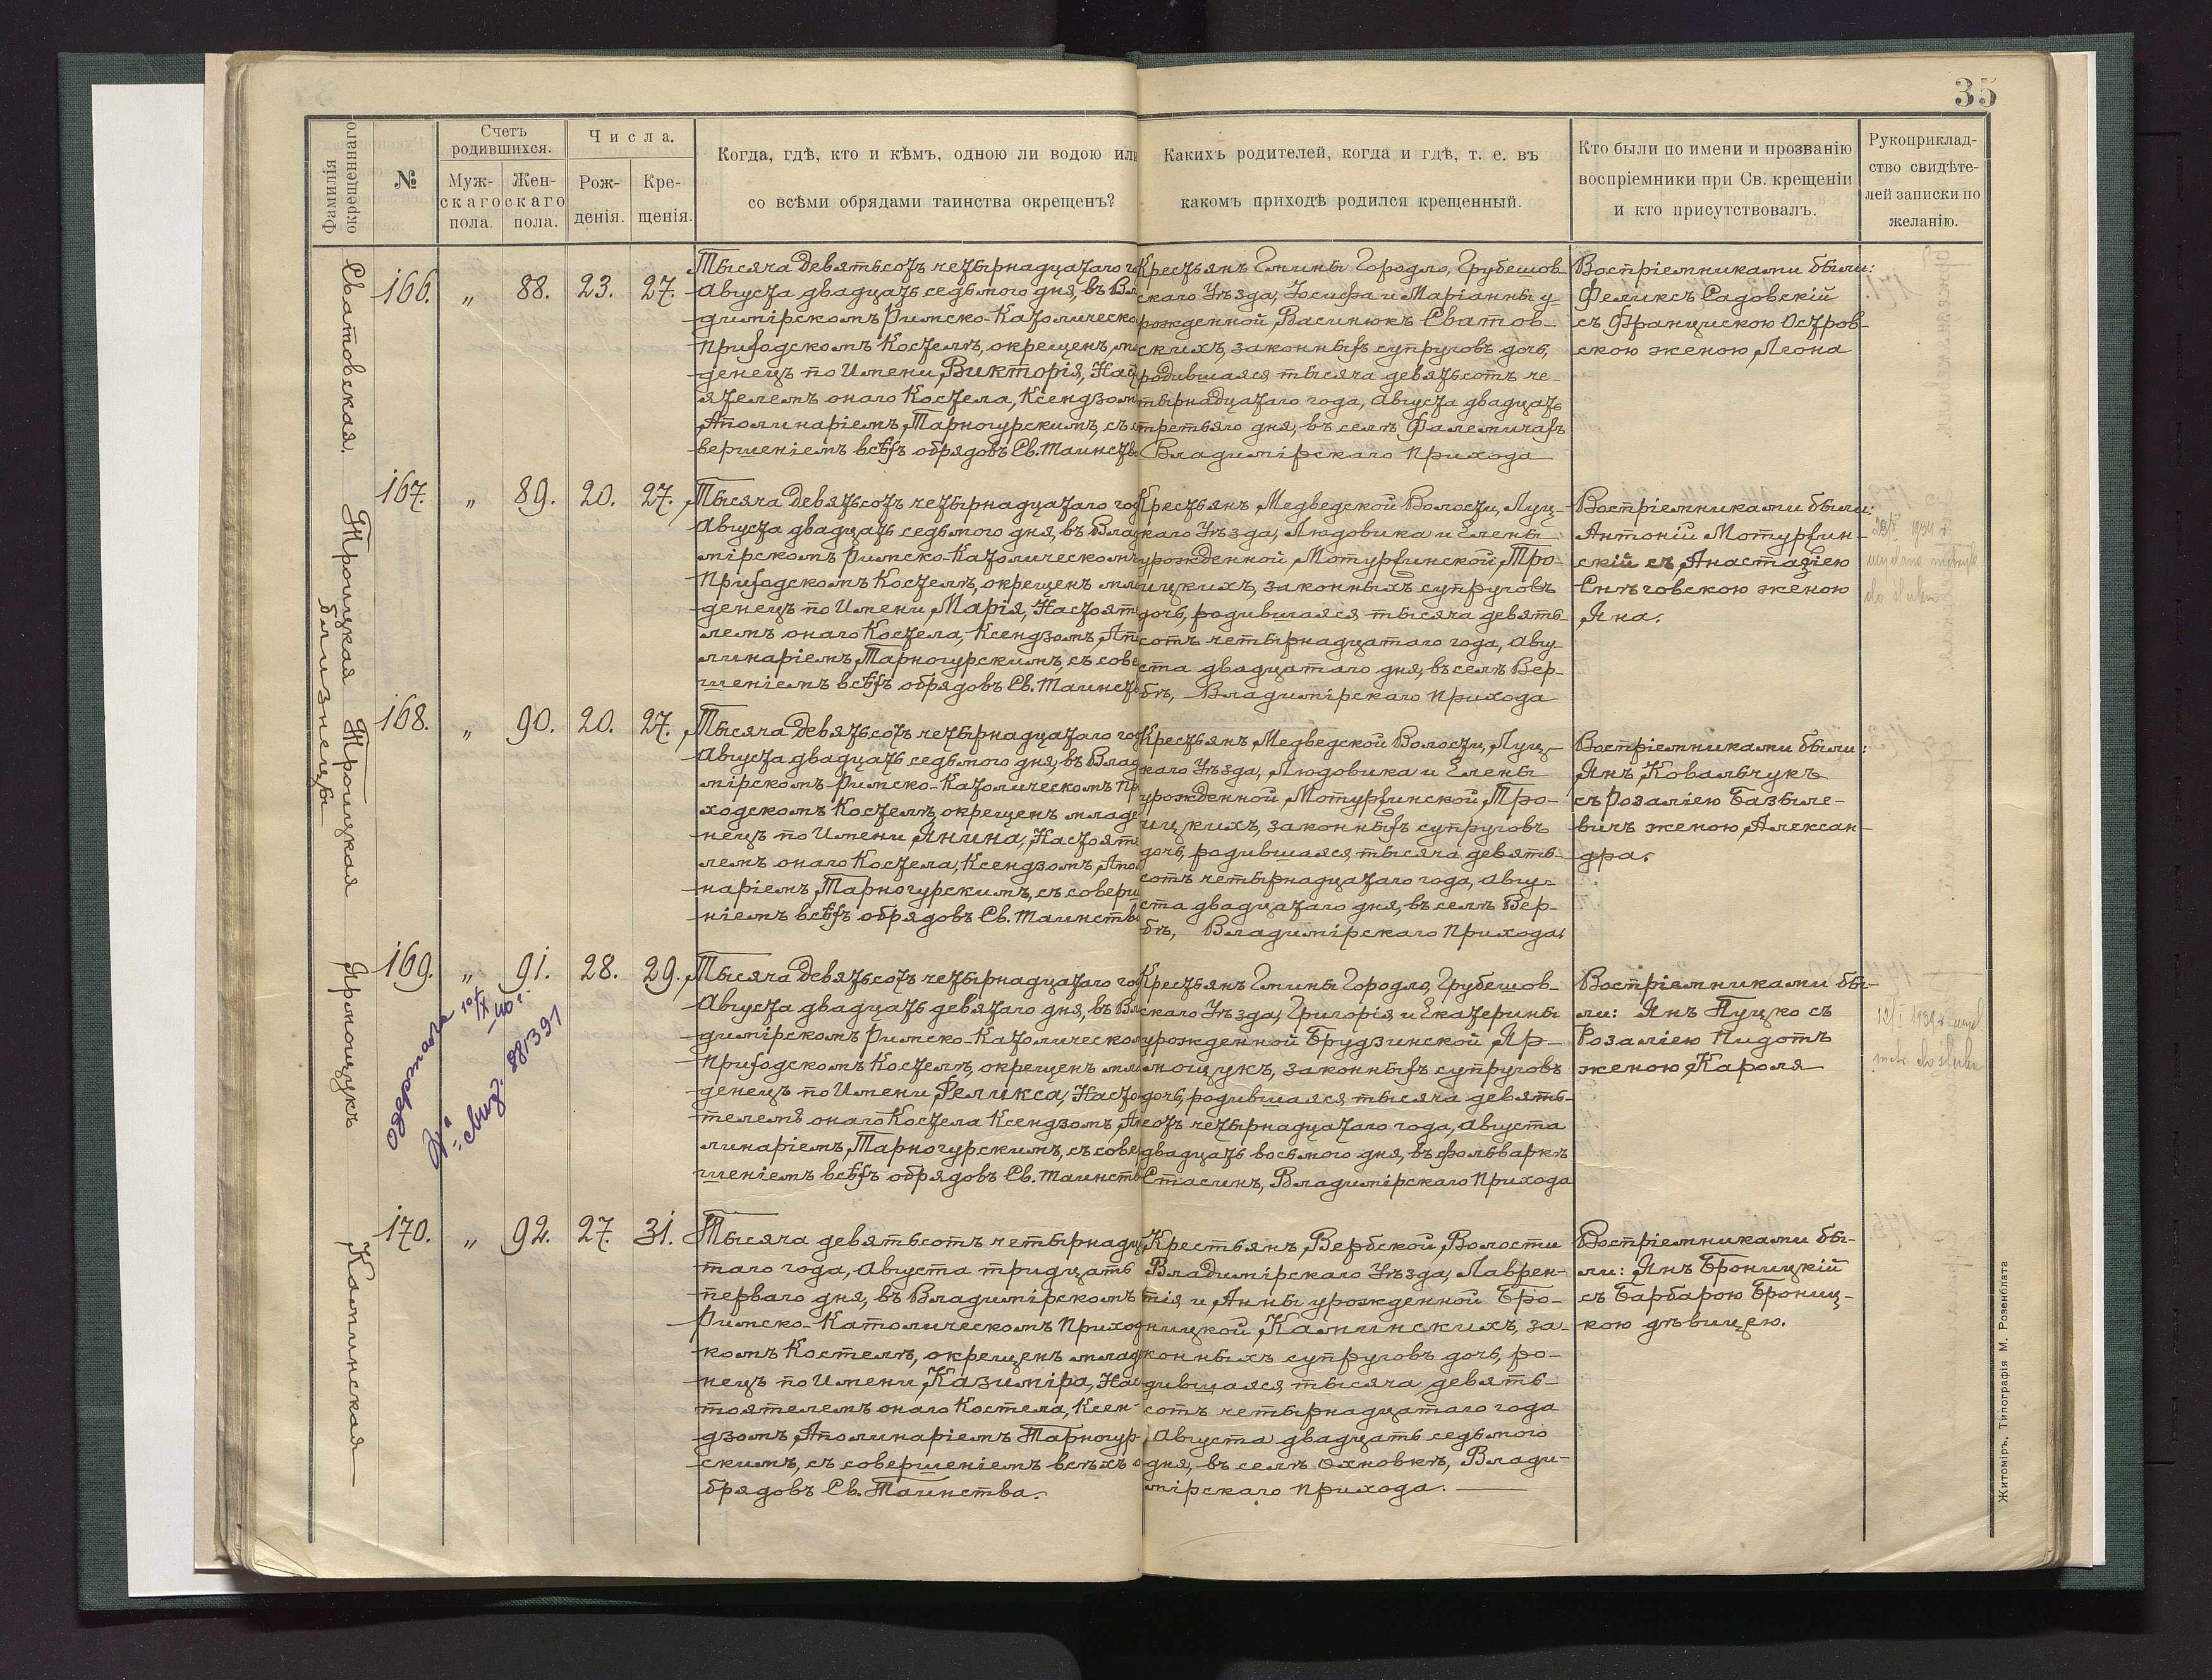 35
Фамилія окрещеннаго
№
Счетъ родившихся.
Мужскаго пола.
Женскаго пола.
Числа.
Рожденія.
Крещенія.
Когда, гдѣ, кто и кѣмъ, одною ли водою или
со всѣми обрядами таинства окрещенъ?
Какихъ родителей, когда и гдѣ, т. е. въ
какомъ приходѣ родился крещенный.
Кто были по имени и прозванію
воспріемники при Св. крещеніи
и кто присутствовалъ.
Рукоприклад-
ство свидѣте-
лей записки по
желанію.
Сватовская.
166. „ 88. 23. 27.
Тысяча девятьсотъ четырнадцатаго го
Августа двадцать седьмого дня, въ Вла
димірскомъ Римско-Католическо
Приходскомъ Костелѣ, окрещенъ мла
денецъ по Имени Викторія, Наст
ятелемъ онаго Костела, Ксендзом
Аполинаріемъ Тарногурскимъ, съ со
вершеніемъ всѣхъ обрядовъ Св. Таинства
Крестьянъ Гмины Городло, Грубешов-
скаго Уѣзда, Іосифа и Маріанны у-
рожденной Васинюкъ Сватов-
скихъ, законныхъ супруговъ дочь,
родившаяся тысяча девятьсотъ че-
тырнадцатаго года, Августа двадцать
третьяго дня, въ селѣ Фалемичахъ
Владимірскаго Прихода
Воспріемниками были:
Феликсъ Садовскій
съ Францискою Остров-
скою женою Леона
Троицкая
близнецы
167. „ 89. 20. 27.
Тысяча девятьсотъ четырнадцатаго год
Августа двадцать седьмого дня, въ Влад
мірскомъ Римско-Католическомъ
Приходскомъ Костелѣ, окрещенъ мла
денецъ по Имени Марія, Настояте
лемъ онаго Костела, Ксендзомъ Апо
линаріемъ Тарногурскимъ, съ сове
шеніемъ всѣхъ обрядовъ Св. Таинства
Крестьянъ Медведской Волости, Луц-
каго Уѣзда, Людовика и Елены
урожденной Мотурхинской, Тро-
ицкихъ, законныхъ супруговъ
дочь, родившаяся тысяча девять-
сотъ четырнадцатаго года, Авгу-
ста двадцатаго дня, въ селѣ Вер-
бѣ, Владимірскаго Прихода
Воспріемниками были:
Антоній Мотурхин-
скій съ Анастазіею
Снѣговскою женою
Яна.
1934 r.
wydano metrykę
do ślubu
Троицкая
168. „ 90. 20. 27.
Тысяча девятьсотъ четырнадцатаго год
Августа двадцать седьмого дня, въ Влад
мірскомъ Римско-Католическомъ Пр
ходскомъ Костелѣ, окрещенъ младе
нецъ по Имени Янина, Настояте
лемъ онаго Костела, Ксендзомъ Апо
наріемъ Тарногурскимъ, съ соверш
ніемъ всѣхъ обрядовъ Св. Таинства
Крестьянъ Медведской Волости, Луц-
каго Уѣзда, Людовика и Елены
урожденной Мотурхинской, Тро-
ицкихъ, законныхъ супруговъ
дочь, родившаяся тысяча девять-
сотъ четырнадцатаго года, Авгу-
ста двадцатаго дня, въ селѣ Вер-
бѣ, Владимірскаго Прихода.
Воспріемниками были:
Янъ Ковальчукъ
съ Розаліею Базыле-
вичъ женою Алексан-
дра.
Ярмощукъ
169. „ 91. 28. 29.
одержала 10/IX 40 г.
свид. 881391
Тысяча девятьсотъ четырнадцатаго го
Августа двадцать девятаго дня, въ Вла
димірскомъ Римско-Католическом
Приходскомъ Костелѣ, окрещенъ мла
денецъ по Имени Феликса, Насто
телемъ онаго Костела Ксендзомъ Апо
линаріемъ Тарногурскимъ, съ сове
шеніемъ всѣхъ обрядовъ Св. Таинств
Крестьянъ Гмины Городло, Грубешов-
скаго Уѣзда, Григорія и Екатерины
урожденной Брудзинской Яр-
мощукъ, законныхъ супруговъ
дочь, родившаяся тысяча девять-
сотъ четырнадцатаго года, Августа
двадцать восьмого дня, въ фольваркѣ
Стасинъ, Владимірскаго Прихода
Воспріемниками бы-
ли: Янъ Пуцко съ
Розаліею Пидотъ
женою Кароля
12/I 1939 r. wyd.
metr. do ślubu
Каминская
170. „ 92. 27. 31.
Тысяча девятьсотъ четырнадц
таго года, Августа тридцать
перваго дня, въ Владимірскомъ
Римско-Католическомъ Приход
комъ Костелѣ, окрещенъ млад
нецъ по Имени Казиміра, Нас
тоятелемъ онаго Костела, Ксен-
дзомъ Аполинаріемъ Тарногур-
скимъ, съ совершеніемъ всѣхъ о
брядовъ Св. Таинства.
Крестьянъ, Вербской Волости
Владимірскаго Уѣзда, Лаврен-
тія и Анны урожденной Бро-
ницкой Каминскихъ, за-
конныхъ супруговъ дочь, ро-
дившаяся тысяча девять-
сотъ четырнадцатаго года
Августа двадцать седьмого
дня, въ селѣ Охновкѣ, Влади-
мірскаго прихода.
Воспріемниками бы-
ли: Янъ Броницкій
съ Барбарою Брониц-
кою дѣвицею.
Житоміръ, Типографія М. Розенблата